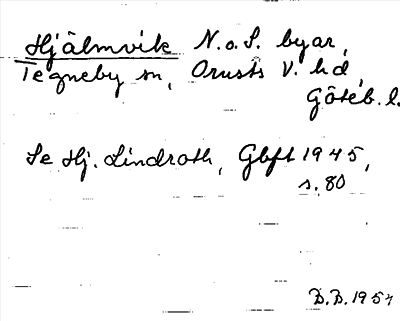 Hjälmvik N. o. S. byar,
Tegneby sn, Orusts V. hd,
Göteb. l.
Se Hj. Lindroth, Gbft 1945,
s. 80
D.D. 1954